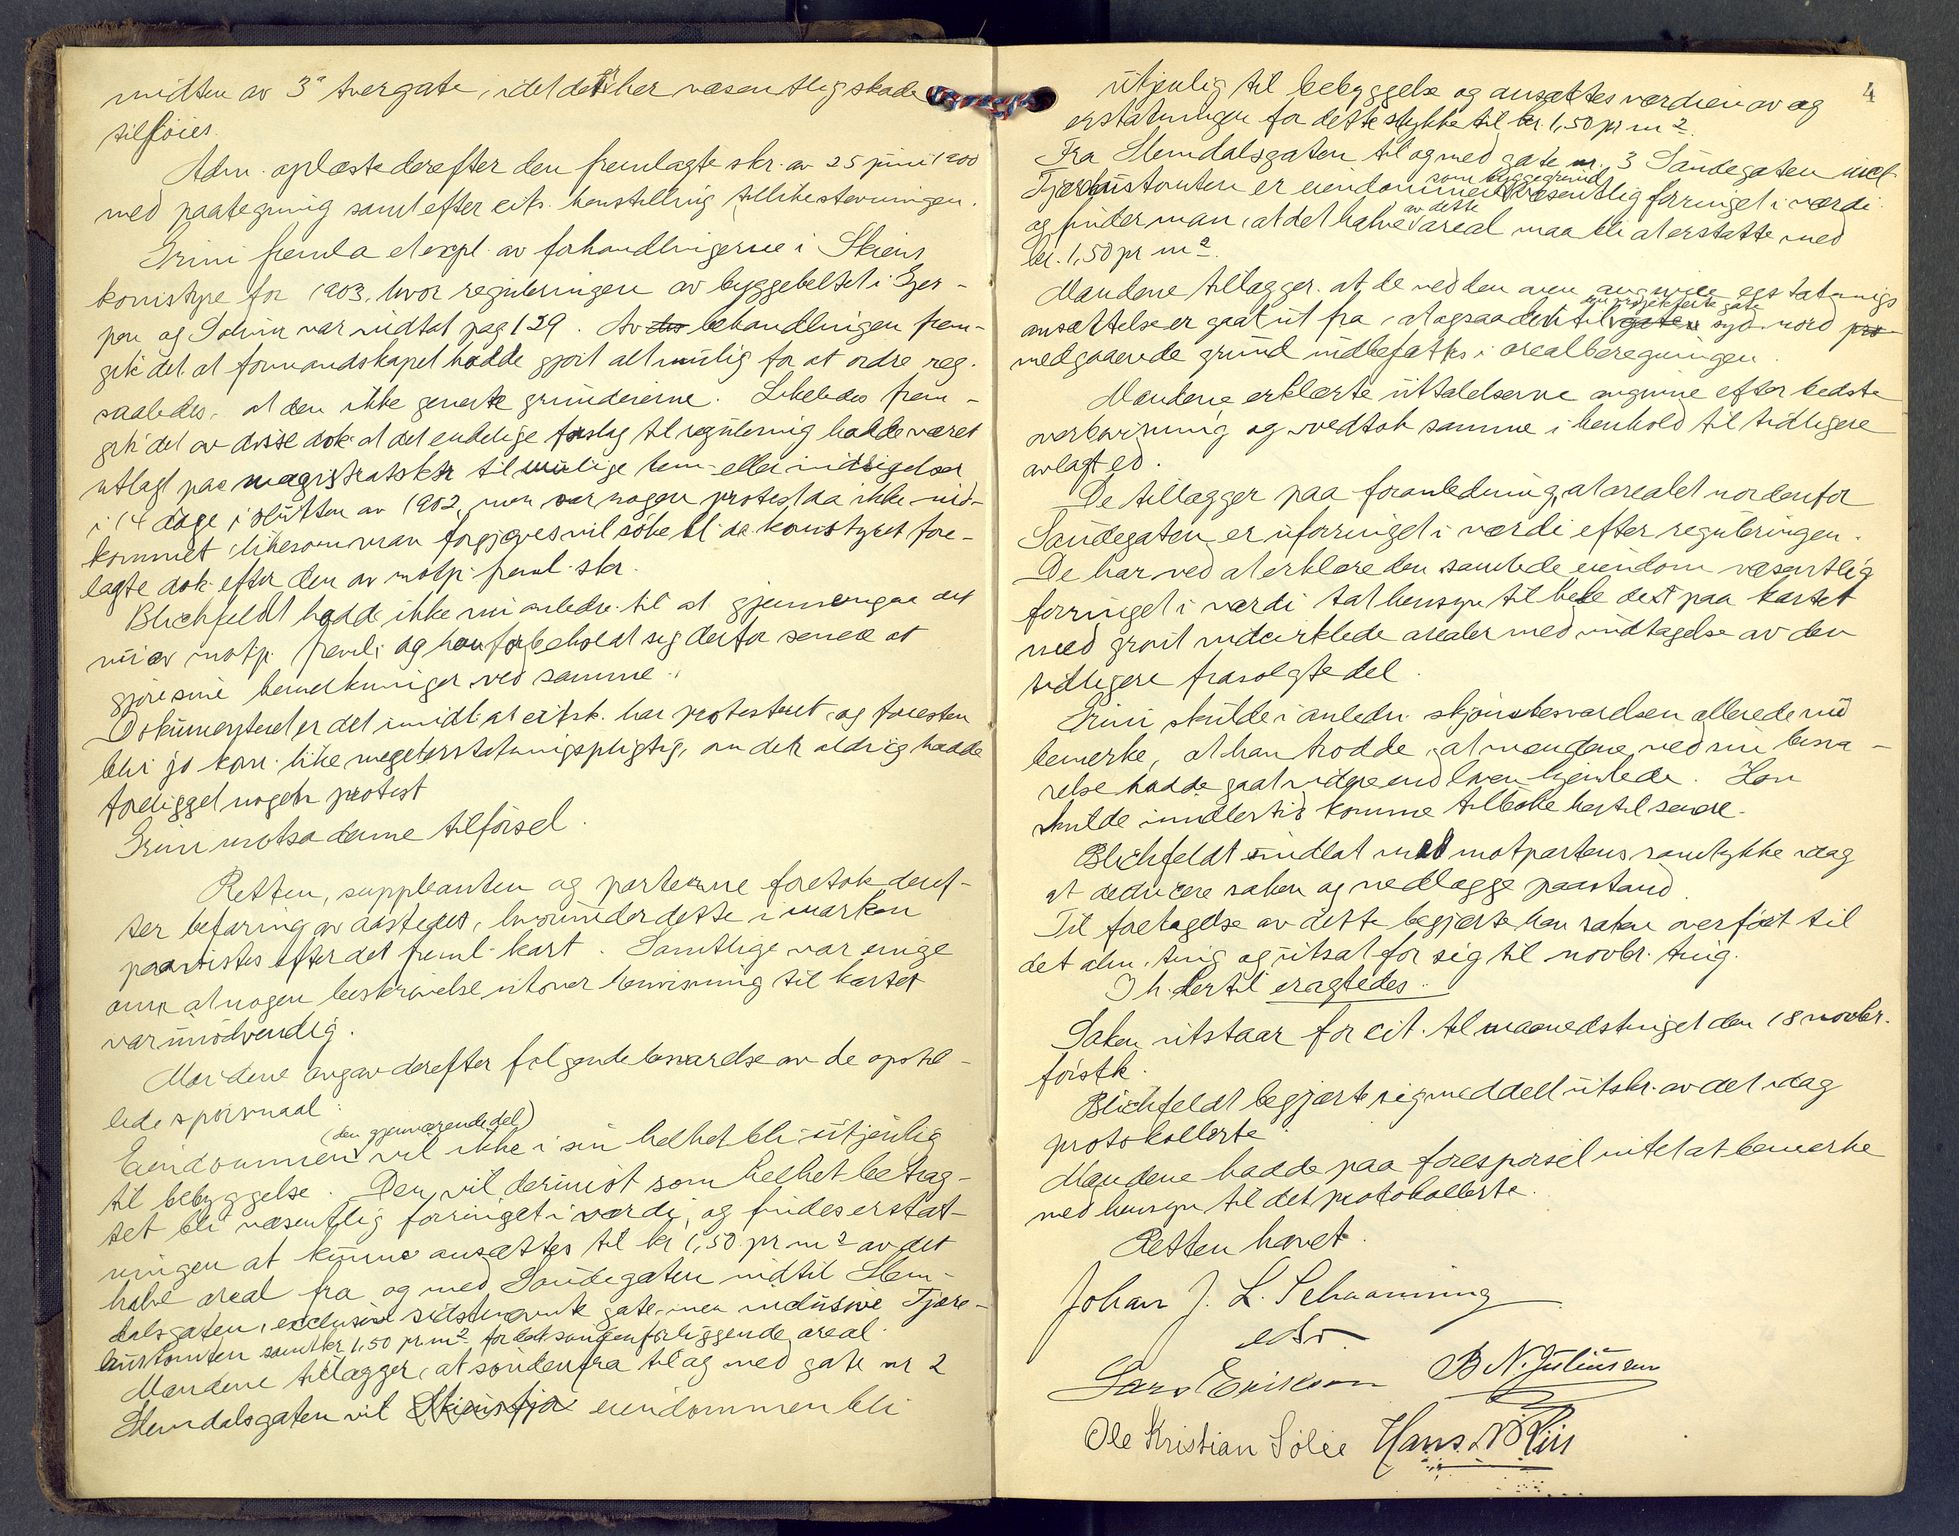 midten av 3die tvergate, idet det her væsentlig skade
tilføies.
Adm. oplæste derefter den fremlagte skr. av 25 juni 1900
med paategning samt efter cits. henstilling tillike stevningen.
Grini fremla et expl. av forhandlingerne i Skiens
komstyre for 1903, hvor reguleringen av byggebeltet i Gjer-
pen og Solum var indtat pag 129. Av behandlingen frem-
gik det at formandskapet hadde gjort alt mulig for at ordne reg.
saaledes, at den ikke generte grundeierne. Likeledes frem-
gik det av disse dok. at det endelige forslag til regulering hadde været
utlagt paa magistratsktr til mulige bem. eller indsigelser
i 14 dage i slutten av 1902, men var nogen protest da ikke ind-
kommet, likesom man forgjæves vil søke bl. de komstyret fore-
lagte dok. efter den av motp. freml. skr.
Blichfeldt hadde ikke nu anledn. til at gjennemgaa det
nu av motp. freml. og han forbeholdt sig derfor senere at
gjøre sine bemerkninger ved samme.
Dokumenteret er det imidl. at citsk. har protestert, og foresten
blir jo kom. like meget erstatningspligtig, om det aldrig hadde
foreligget nogen protest
Grini motsa denne tilførsel.
Retten, suppleanten og parterne foretok deref-
ter befaring av aastedet, hvorunder dette i marken
paavistes efter det freml. kart. Samtlige var enige
om at nogen beskrivelse utover henvisning til kartet
var unødvendig.
Mændene avgav derefter følgende besvarelse av de opstil-
lede spørsmaal:
(den gjenværende del)
Eiendommen vil ikke i sin helhet bli utjenlig
til bebyggelse. Den vil derimot som helhet betrag-
tet bli væsentlig forringet i værdi, og findes erstat-
ningen at kunne ansættes til kr 1,50 pr m² av det
halve areal fra og med Sandegaten indtil Hem-
dalsgaten, exclusive sidstnævnte gate, men inclusive Tjære-
hustomten samt kr 1,50 pr. m² for det søndenfor liggende areal.
Mændene tillægger, at søndenfra til og med gate nr 2
Hemdalsgaten vil eiendommen bli
4
utjenlig til bebyggelse og ansættes værdien av og
erstatningen for dette stykke til kr. 1,50 pr m².
Fra Hemdalsgaten til og med gate nr. 3 Sandegaten incl.
som byggegrund
Tjærehustomten er eiendommen væsentlig forringet i værdi
av dette
og finder man, at det halve areal maa bli at erstatte med
kr. 1,50 pr m².
Mændene tillægger, at de ved den oven angivne erstatnings
den projekterte gate
ansættelse er gaat ut fra, at ogsaa den til syd-nord
medgaaende grund indbefattes i arealberegningen
Mændene erklærte uttalelserne avgivne efter bedste
overbevisning og vedtok samme i henhold til tidligere
avlagt ed.
De tillægger paa foranledning, at arealet nordenfor
Sandegaten er uforringet i værdi efter reguleringen.
De har ved at erklære den samlede eiendom væsentlig
forringet i værdi tat hensyn til hele det paa kartet
med grønt indcirklede arealer med undtagelse av den
tidligere frasolgte del.
Grini skulde i anledn. skjønsbesvarelsen allerede nu
bemerke, at han trodde, at mændene ved sin besva-
relse hadde gaat videre end loven hjemlede. Han
skulde imidlertid komme tilbake hertil senere.
Blichfeldt undlot med motpartens samtykke idag
at deducere saken og nedlægge paastand
Til foretagelse av dette begjærte han saken overført til
det alm. ting og utsat for sig til novbr. ting.
I h. hertil eragtedes:
Saken utstaar for cit. til maanedstinget den 18 novbr.
førstk.
Blichfeldt begjærte sig meddelt utskr. av det idag
protokollerte
Mændene hadde paa forespørsel intet at bemerke
med hensyn til det protokollerte.
Retten hævet.
Johan J. L. Schaanning
edsv.
Lars Eriksen B N. Juliussen
Ole Kristian Solie Hans N